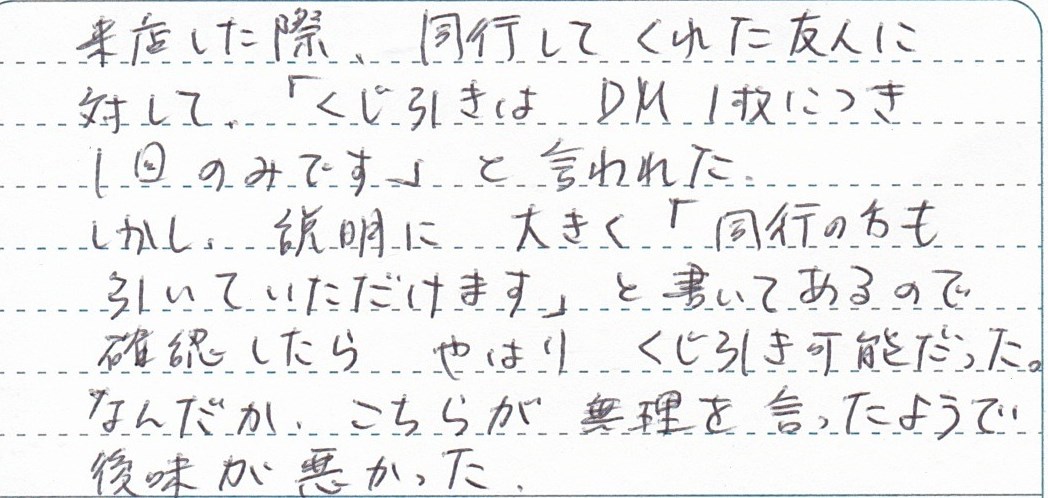 来店した際、同行してくれた友人に
対して、「くじ引きは DM 1枚につき
1回のみです」と言われた。
しかし、説明に 大きく「同行の方も
引いていただけます」と書いてあるので
確認したら やはり くじ引き可能だった。
なんだか、こちらが無理を言ったようで
後味が悪かった。